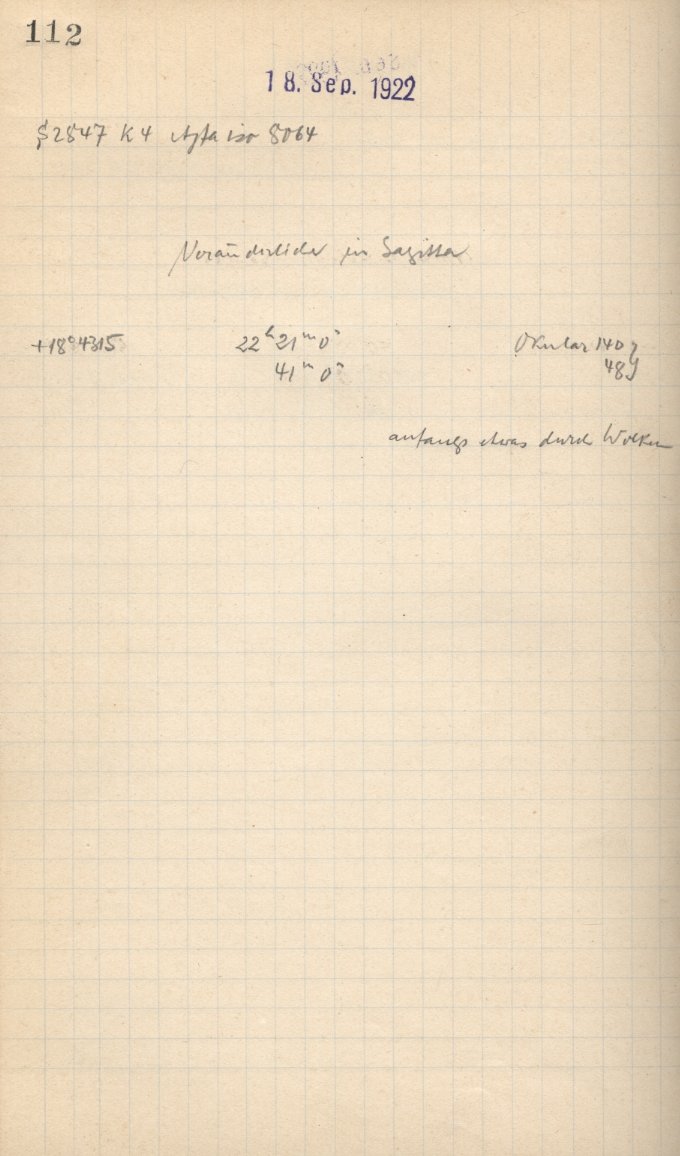 112
18. Sep. 1922
S2847 K4 Agfa iso 8064
Veränderlicher in Sagitta
+18°4315 22ʰ21ᵐ0ˢ Okular 140
41ᵐ 0ˢ 48
anfangs etwas durch Wolken